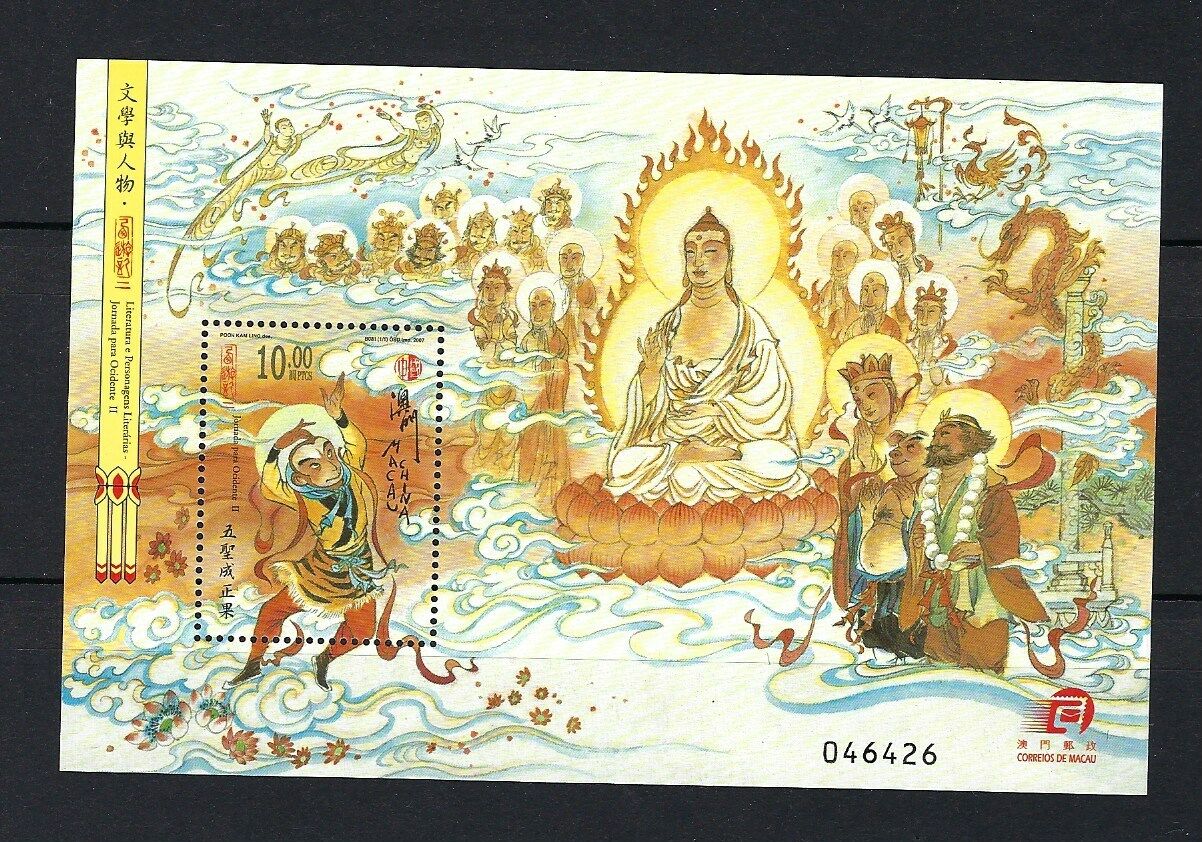 文學與人物·西遊記二
Literatura e Personagens Literárias -
Jornada para Ocidente II
POON KAM LING des.
10.00
PTCS
西遊記
Jornada para Ocidente II
五聖成正果
澳門
MACAU
CHINA
046426
澳門郵政
CORREIOS DE MACAU